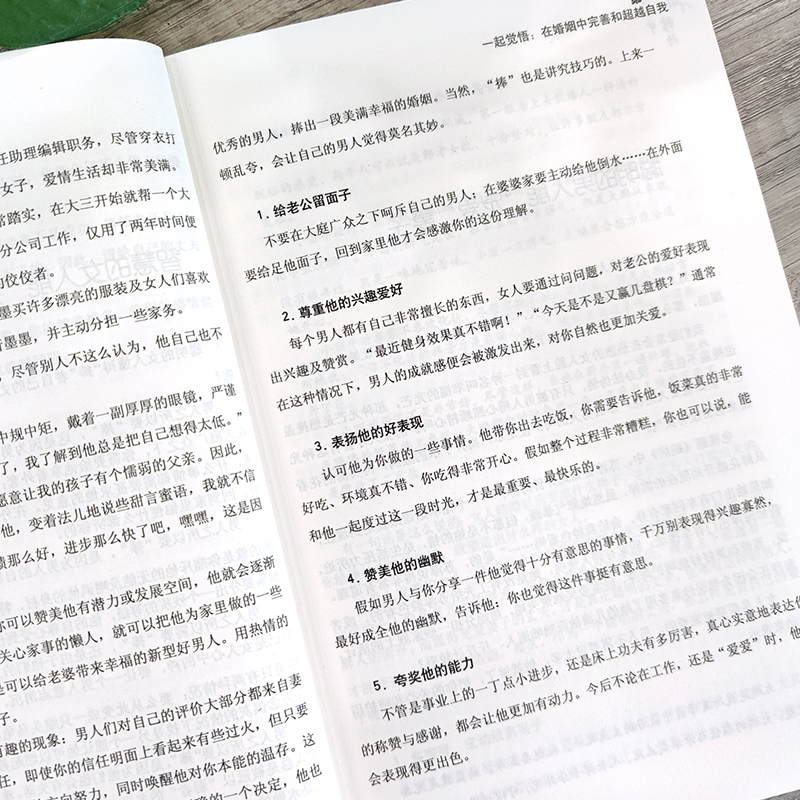 任助理编辑职务，尽管穿衣打
女子，爱情生活却非常美满。
常踏实，在大三开始就帮一个大
分公司工作，仅用了两年时间便
的佼佼者。
墨买许多漂亮的服装及女人们喜欢
墨墨，并主动分担一些家务。
，尽管别人不这么认为，他自己也不
中规中矩，戴着一副厚厚的眼镜，严谨
了，我了解到他总是把自己想得太低。”
愿意让我的孩子有个懦弱的父亲。因此，
他，变着法儿地说些甜言蜜语，我就不信
绩那么好，进步那么快了吧，嘿嘿，这是因
你可以赞美他有潜力或发展空间，他就会逐渐
关心家事的懒人，就可以把他为家里做的一些
是可以给老婆带来幸福的新型好男人。用热情的
子。
有趣的现象：男人们对自己的评价大部分都来自妻
任，即使你的信任明面上看起来有些过火，但只要
方向努力，同时唤醒他对你本能的温存。这
的一个决定，他也
一起觉悟：在婚姻中完善和超越自我
优秀的男人，捧出一段美满幸福的婚姻。当然，“捧”也是讲究技巧的。上来一
顿乱夸，会让自己的男人觉得莫名其妙。
1. 给老公留面子
不要在大庭广众之下呵斥自己的男人；在婆婆家要主动给他倒水……在外面
要给足他面子，回到家里他才会感激你的这份理解。
2. 尊重他的兴趣爱好
每个男人都有自己非常擅长的东西，女人要通过问问题，对老公的爱好表现
出兴趣及赞赏。“最近健身效果真不错啊！”、“今天是不是又赢几盘棋？”通常
在这种情况下，男人的成就感便会被激发出来，对你自然也更加关爱。
3. 表扬他的好表现
认可他为你做的一些事情。他带你出去吃饭，你需要告诉他，饭菜真的非常
好吃、环境真不错、你吃得非常开心。假如整个过程非常糟糕，你也可以说，能
和他一起度过这一段时光，才是最重要、最快乐的。
4. 赞美他的幽默
假如男人与你分享一件他觉得十分有意思的事情，千万别表现得兴趣寡然，
最好成全他的幽默，告诉他：你也觉得这件事挺有意思。
5. 夸奖他的能力
不管是事业上的一丁点小进步，还是床上功夫有多厉害，真心实意地表达你
的称赞与感谢，都会让他更加有动力。今后不论在工作，还是“爱爱”时，他
会表现得更出色。